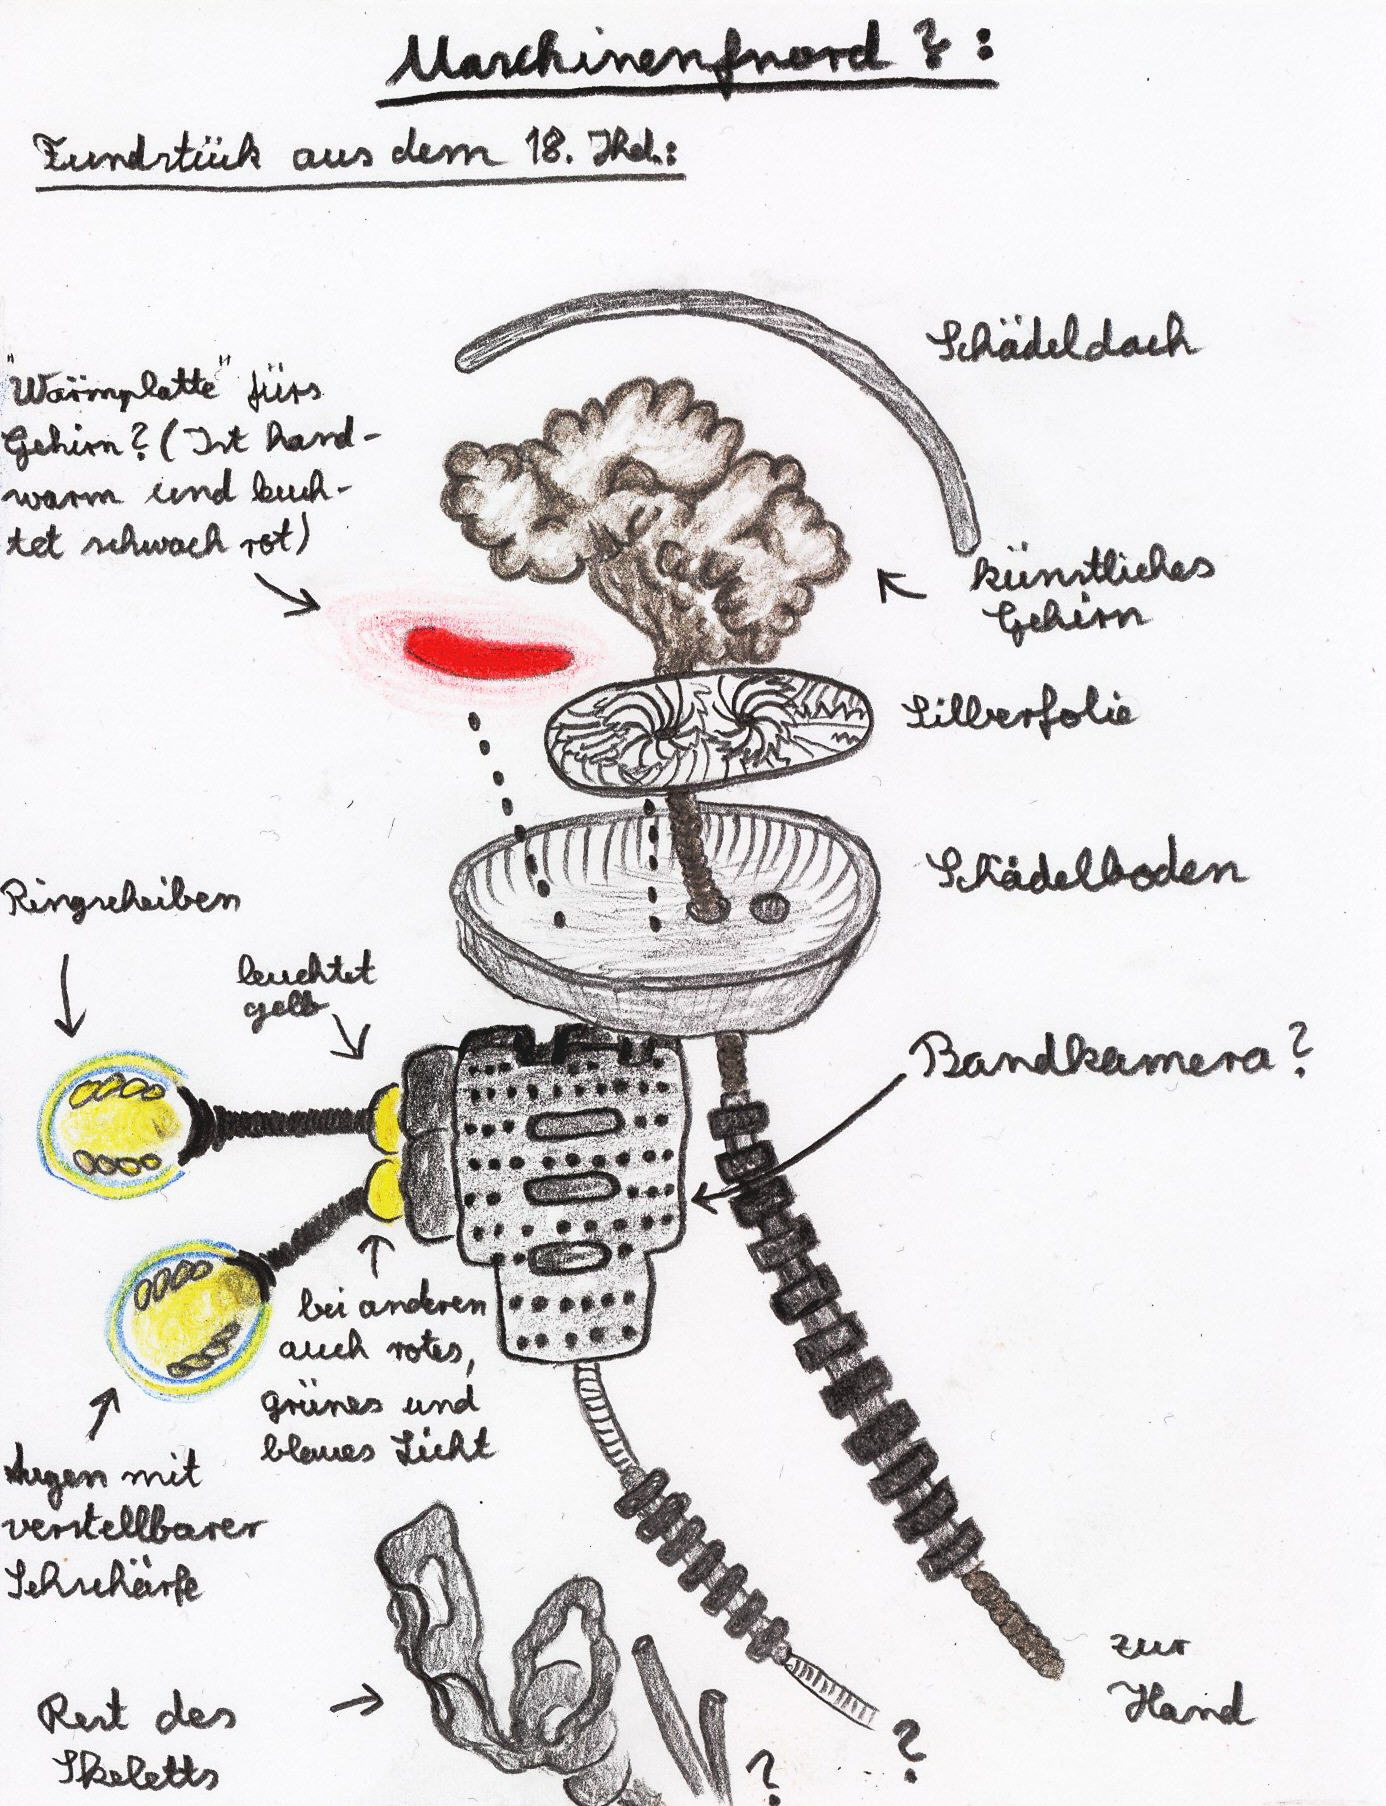 Maschinenfnord ?:
Fundstück aus dem 18. Jhd.:
Schädeldach
"Wärmplatte" fürs
Gehirn? (Ist hand-
warm und leuch-
tet schwach rot)
künstliches
Gehirn
Silberfolie
Schädelboden
Ringscheiben
leuchtet
gelb
Bandkamera?
bei anderen
auch rotes,
grünes und
blaues Licht
Augen mit
verstellbarer
Sehschärfe
zur
Hand
Rest des
Skeletts
?
?